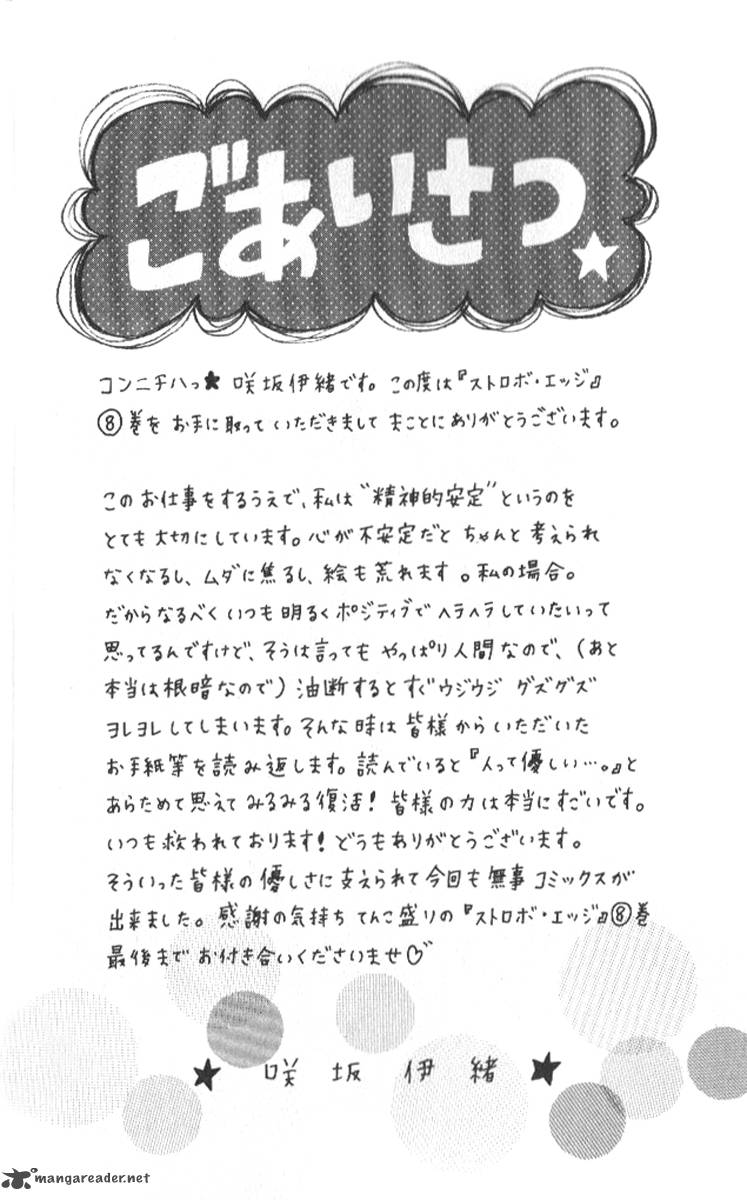 ごあいさつ★
コンニチハっ★ 咲坂伊緒です。この度は『ストロボ・エッジ』
⑧巻を お手に取って いただきまして まことにありがとうございます。
このお仕事をするうえで、私は“精神的安定”というのを
とても大切にしています。心が不安定だと ちゃんと考えられ
なくなるし、ムダに焦るし、絵も荒れます。私の場合。
だからなるべくいつも明るくポジティブでヘラヘラしていたいって
思ってるんですけど、そうは言っても やっぱり人間なので、(あと
本当は根暗なので)油断するとすぐウジウジ グズグズ
ヨレヨレしてしまいます。そんな時は皆様からいただいた
お手紙等を読み返します。読んでいると『人って優しい…。』と
あらためて思えて みるみる復活!皆様の力は本当にすごいです。
いつも救われております!どうもありがとうございます。
そういった皆様の優しさに支えられて今回も無事コミックスが
出来ました。感謝の気持ちてんこ盛りの『ストロボ・エッジ』⑧巻
最後まで お付き合いくださいませ♡
★ 咲坂伊緒 ★
mangareader.net